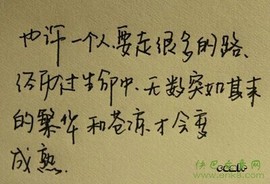 也许一个人,要走很多的路、
经历过生命中,无数突如其来
的繁华和苍凉.才会变
成熟.